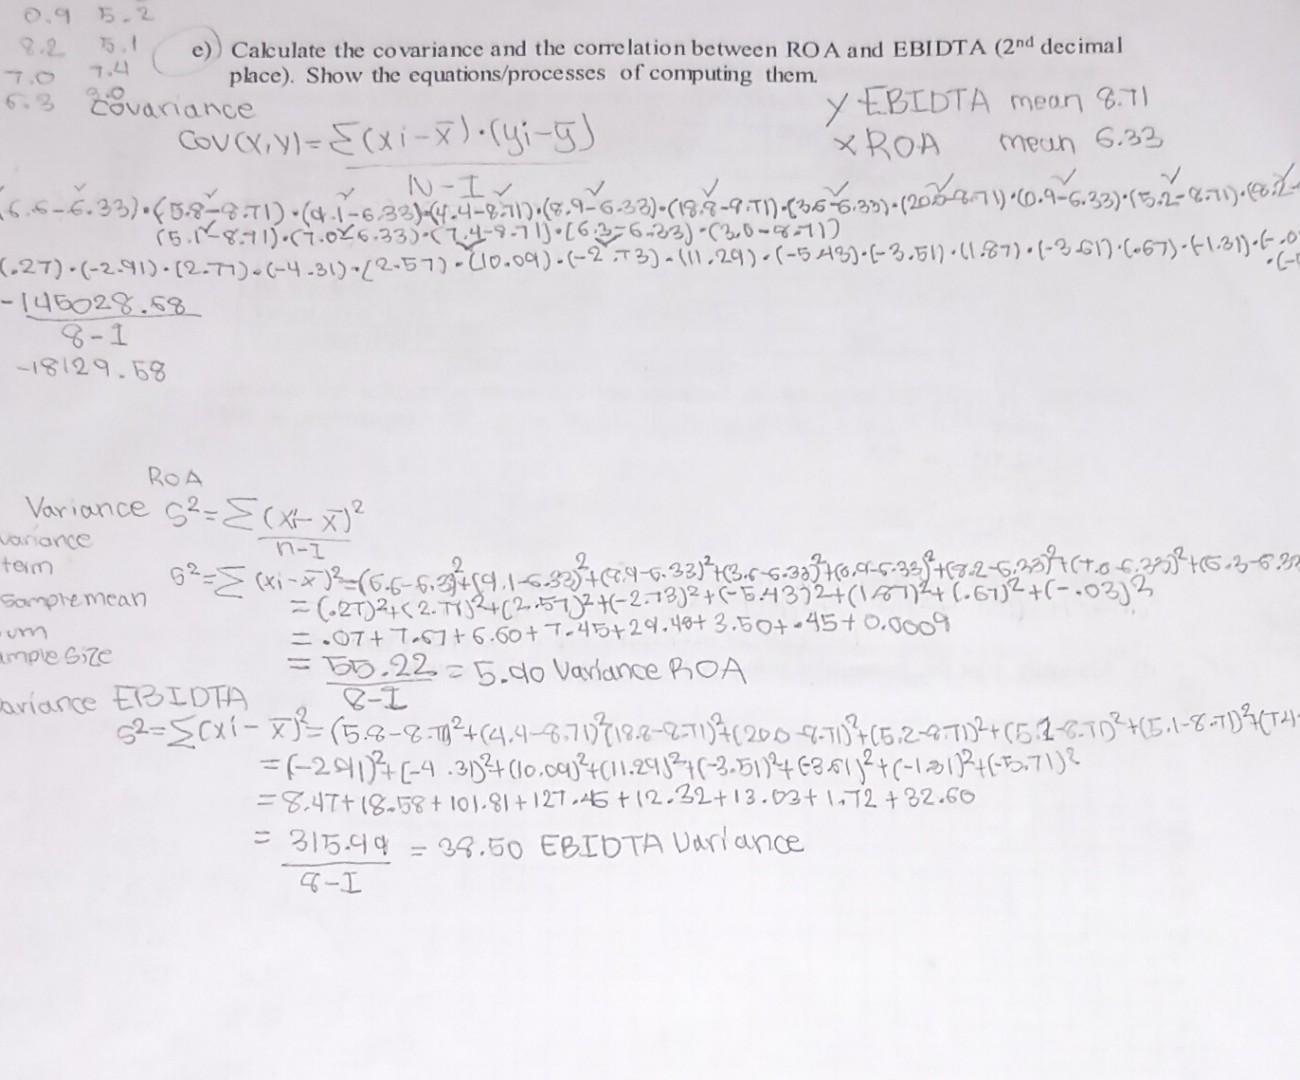 0.9 5.2
8.2 5.1
7.0 7.4
6.3 3.0
e) Calculate the covariance and the correlation between ROA and EBIDTA (2nd decimal
place). Show the equations/processes of computing them.
Covariance
y EBIDTA mean 8.71
x ROA mean 6.33
Cov(x,y)=Σ(xi-x̄)·(yi-ȳ)
N-1
(6.6-6.33)·(5.8-8.71)·(9.1-6.33)·(4.4-8.71)·(8.9-6.33)·(18.8-8.71)·(3.6-6.33)·(20.0-8.71)·(0.9-6.33)·(5.2-8.71)·(8.2-
(5.1-8.71)·(7.0-6.33)·(7.4-8.71)·(6.3-6.33)·(3.0-8.71)
(.27)·(-2.91)·(2.77)·(-4.31)·(2.57)·(10.09)·(-2.73)·(11.29)·(-5.43)·(-3.51)·(1.87)·(-3.61)·(.67)·(-1.31)·(-.0
·(-5
-145028.58
8-1
-18129.58
ROA
Variance S²=Σ(xi-x̄)²
n-1
variance
term
S²=Σ(xi-x̄)²=(6.6-6.33)²+(9.1-6.33)²+(8.9-6.33)²+(3.6-6.33)²+(0.9-6.33)²+(8.2-6.33)²+(7.0-6.33)²+(6.3-6.33
sample mean
=(.27)²+(2.77)²+(2.57)²+(-2.73)²+(-5.43)2+(1.87)²+(.67)²+(-.03)2
um
=.07+7.67+6.60+7.45+29.48+3.50+.45+0.0009
ample size
=55.22=5.90 Variance ROA
8-1
ariance EBIDTA
S²=Σ(xi-x̄)²=(5.8-8.71)²+(4.4-8.71)²(18.8-8.71)²+(20.0-8.71)²+(5.2-8.71)²+(5.1-8.71)²+(5.1-8.71)²+(7.4-
=(-2.91)²+(-4.31)²+(10.09)²+(11.29)²+(-3.51)²+(-3.61)²+(-1.31)²+(-5.71)²
=8.47+18.58+101.81+127.46+12.32+13.03+1.72+32.60
=315.99=38.50 EBIDTA Variance
8-1